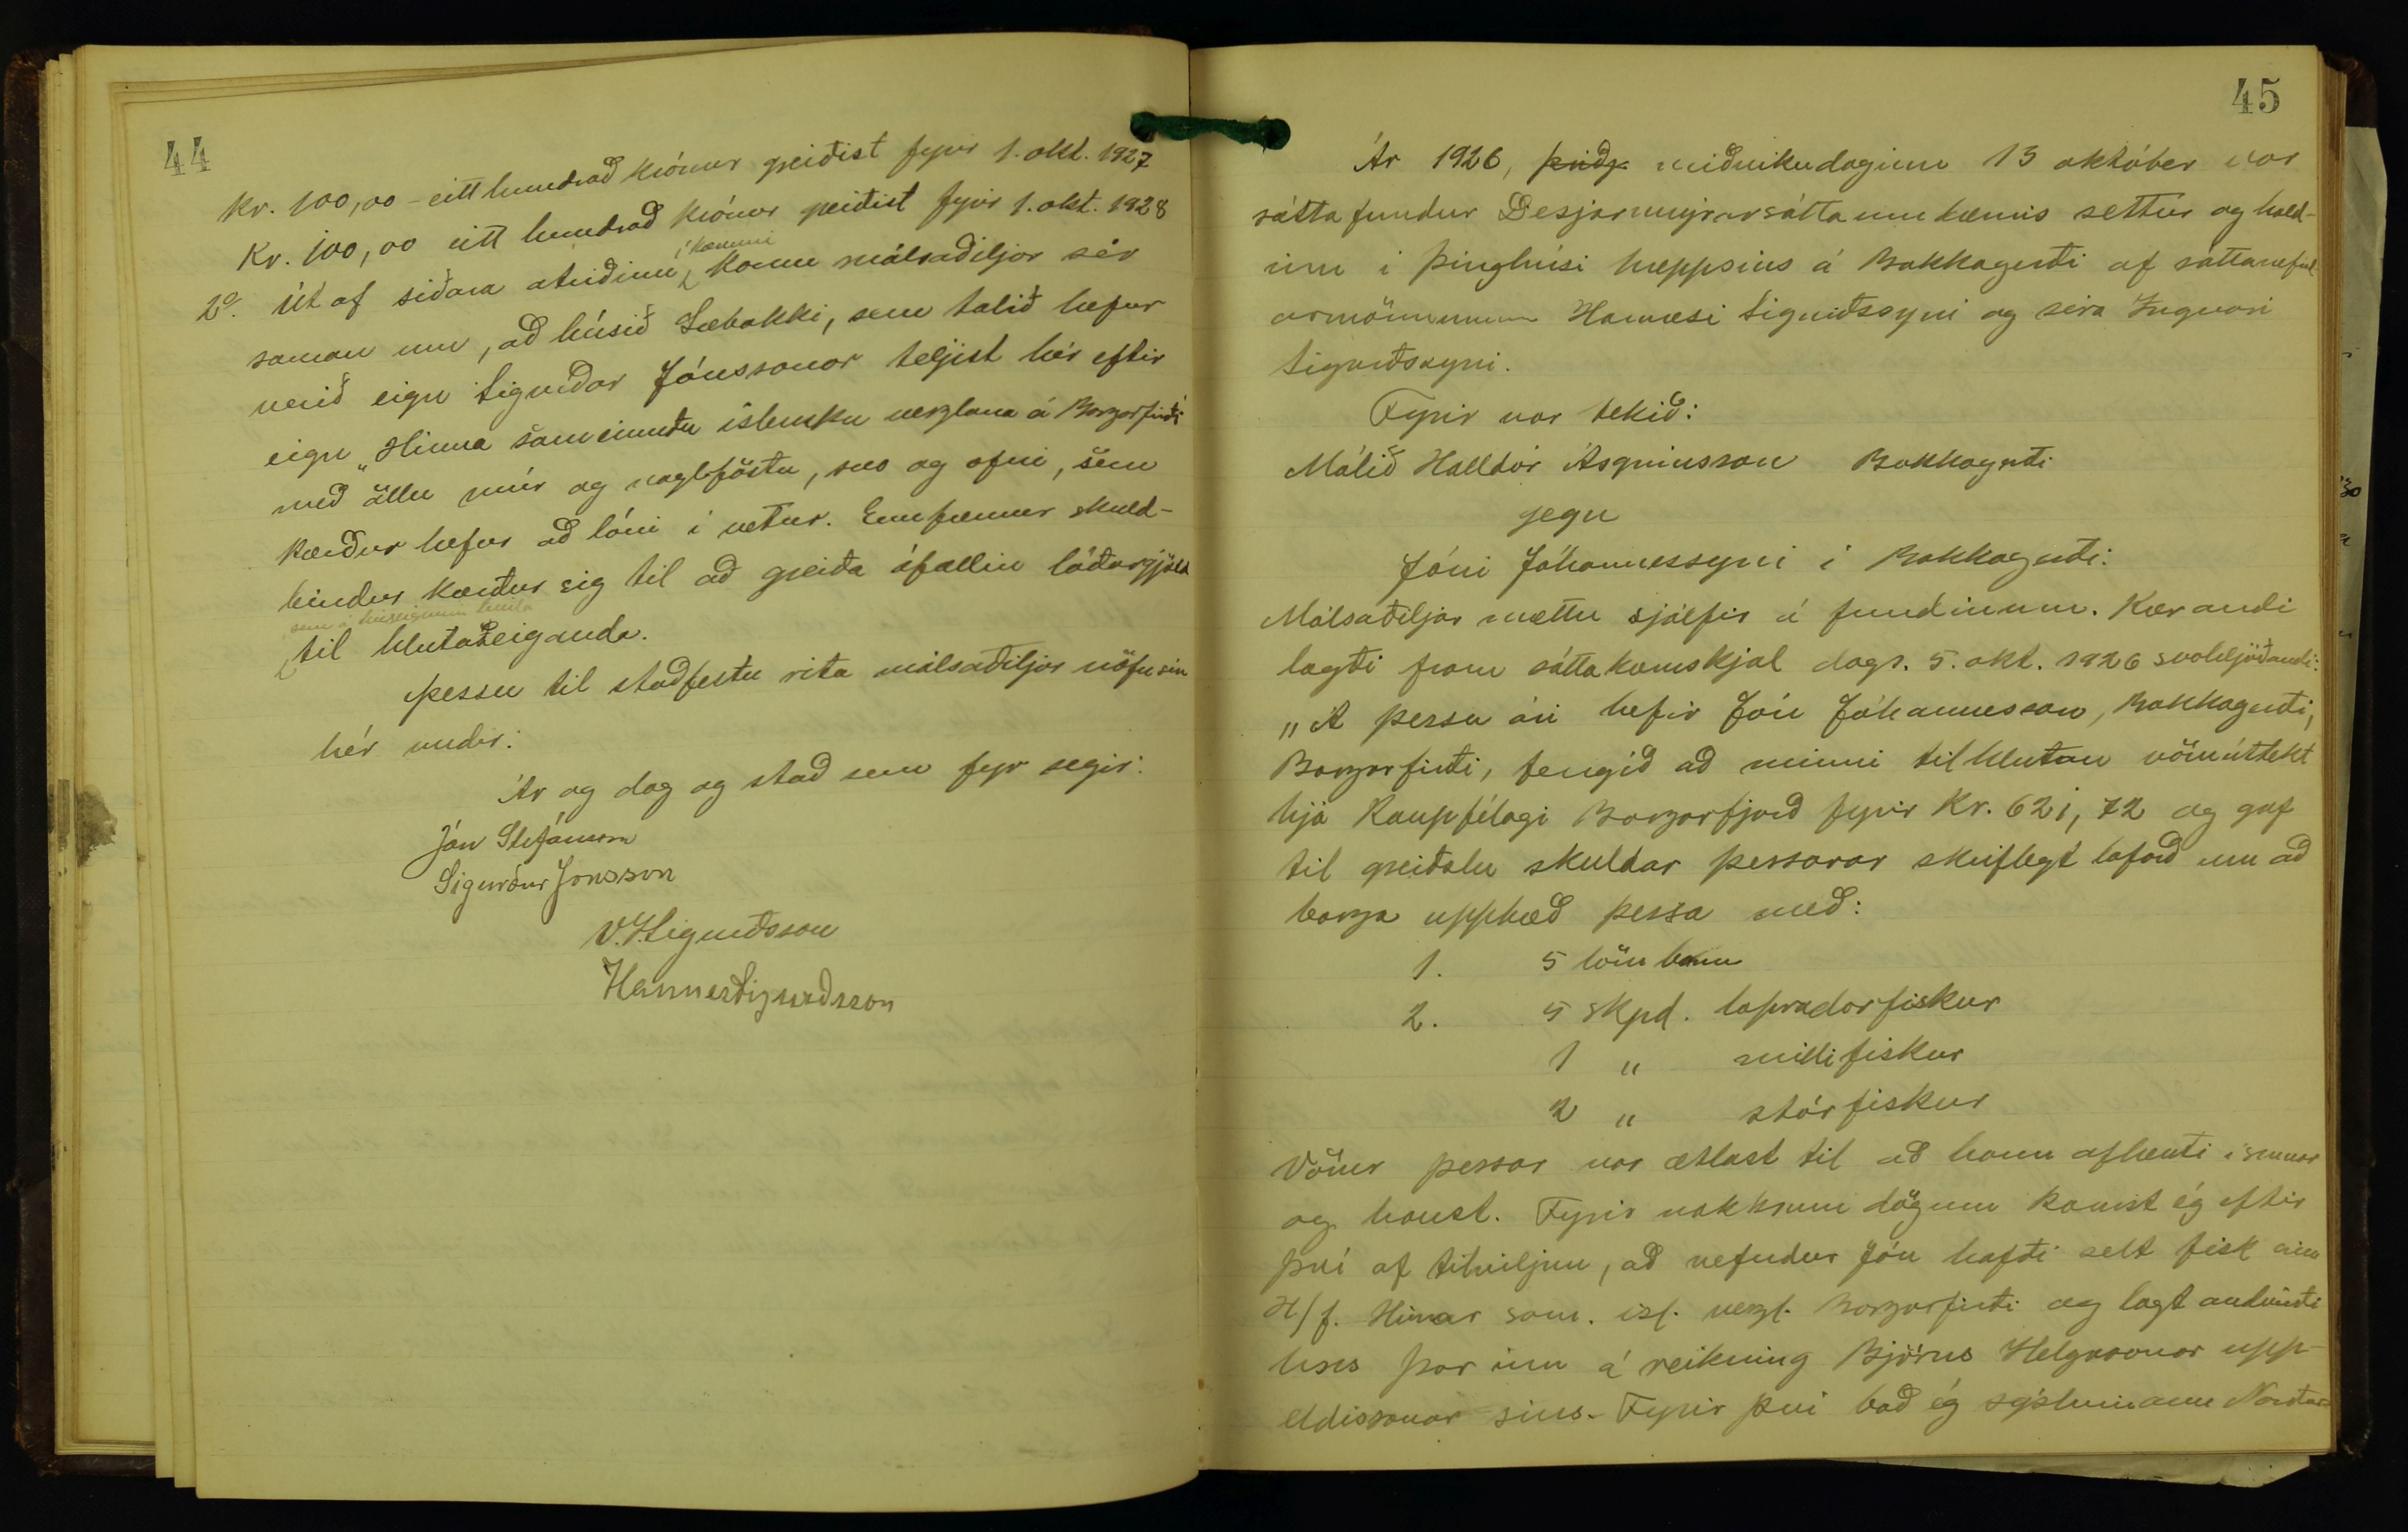 44
Kr. 100,00 - eitt hundrað krónur greiðist fyrir 1. okt. 1927
Kr. 100,00 eitt hundrað krónur greiðist fyrir 1. okt. 1928
í kærunni
2º. Út af síðara atriðinu, komu málsaðiljar sér
saman um, að húsið Sæbakki, sem talið hefur
verið eign Sigurðar Jónssonar teljist hér eftir
eign „Hinna sameinuðu íslensku verzlana á Borgarfirði
með öllu múr og naglföstu, svo og ofni, sem
kærður hefur að láni í vetur. Ennfremur skuld-
bindur kærður sig til að greiða áfallin lóðargjöld
sem á húseigninni hvíla
til hlutaðeiganda.
Þessu til staðfestu rita málsaðiljar nöfn sín
hér undir:
Ár og dag og stað sem fyr segir:
Jón Stefánsson
Sigurður Jónsson
V.I. Sigurðsson
Hannes Sigurðsson
45
Ár 1926, þriðj miðvikudaginn 13 október var
sáttafundur Desjarmýrarsáttaumdæmis settur og hald-
inn í þinghúsi hreppsins á Bakkagerði af sáttanefnd
armönnunum Hannesi Sigurðssyni og síra Ingvari
Sigurðssyni.
Fyrir var tekið:
Málið Halldór Ásgrímsson Bakkagerði
gegn
Jóni Jóhannessyni í Bakkagerði:
Málsaðiljar mættu sjálfir á fundinum. Kærandi
lagði fram sáttakæruskjal dags. 5. okt. 1926 svohljóðandi:
„Á þessu ári hefir Jón Jóhannesson, Bakkagerði,
Borgarfirði, fengið að minni tilhlutan vöruúttekt
hjá Kaupfélagi Borgarfjarð fyrir Kr. 621,72 og gaf
til greiðslu skuldar þessarar skriflegt loforð um að
borga upphæð þessa með:
1. 5 lömbum
2. 5 skpd. lapradorfiskur
1 " millifiskur
2 " stórfiskur
Vörur þessar var ætlast til að hann afhenti í sumar
og haust. Fyrir nokkrum dögum komst ég eftir
því af tilviljun, að nefndur Jón hafði selt fisk sinn
H/f. Hinar sam. ísl. verzl. Borgarfirði og lagt andvirði
hans þar inn á reikning Björns Helgasonar upp-
eldissonar síns. Fyrir því bað ég sýslumann Norður-